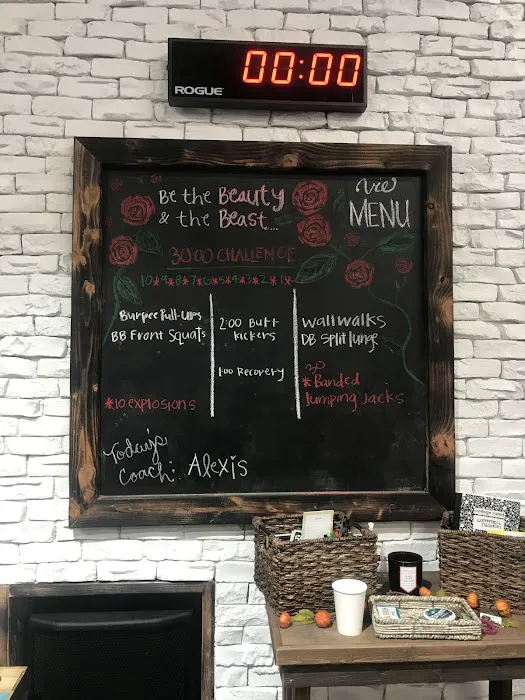 00:00
ROGUE
Be the Beauty
& the Beast...
Vie
MENU
30:00 CHALLENGE
10*9*8*7*6*5*4*3*2*1*
Burpee Pull-Ups
BB Front Squats
*10 explosions
2:00 Butt
kickers
1:00 Recovery
Wallwalks
DB Split lunge
30
*Banded
Jumping Jacks
Today's
Coach: Alexis